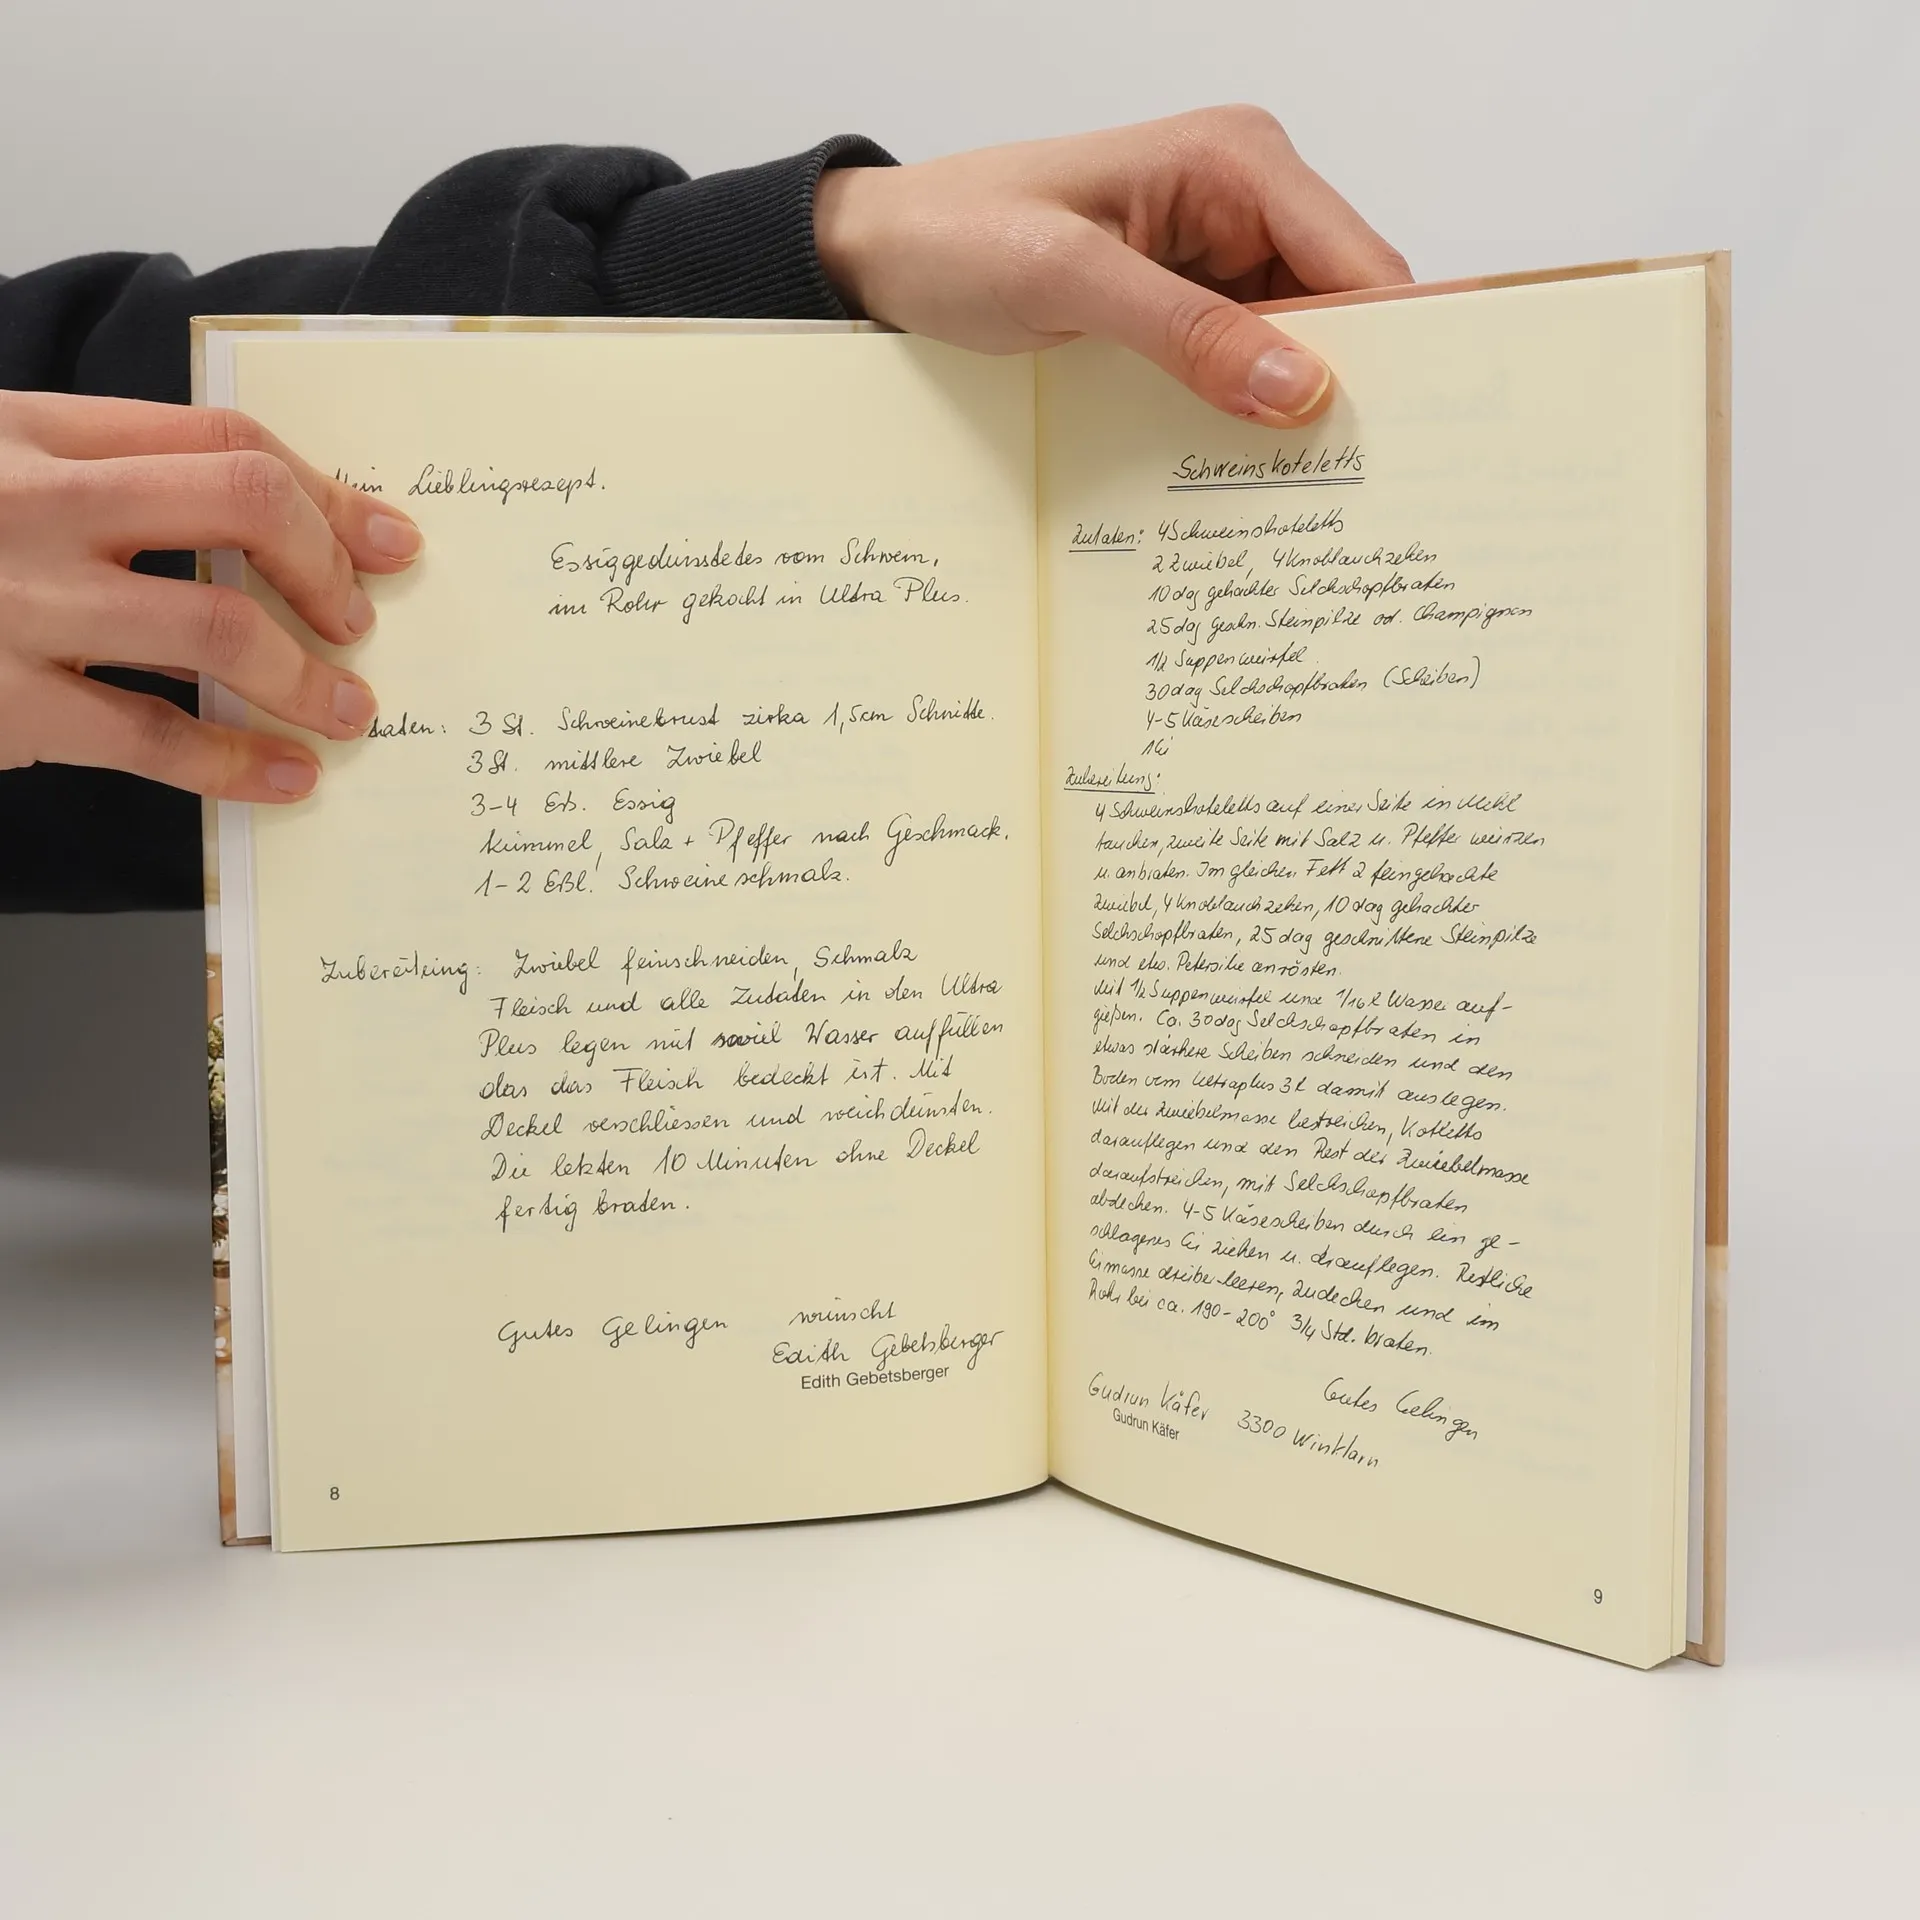 Mein Lieblingsrezept.
Essiggedünstetes vom Schwein,
im Rohr gekocht in Ultra Plus.
taten: 3 St. Schweinebrust zirka 1,5cm Schnitte.
3 St. mittlere Zwiebel
3-4 Eß. Essig
Kümmel, Salz + Pfeffer nach Geschmack.
1-2 Eßl. Schweineschmalz.
Zubereitung: Zwiebel feinschneiden, Schmalz
Fleisch und alle Zutaten in den Ultra
Plus legen mit soviel Wasser auffüllen
das das Fleisch bedeckt ist. Mit
Deckel verschliessen und weichdünsten.
Die letzten 10 Minuten ohne Deckel
fertig braten.
Gutes Gelingen wünscht
Edith Gebetsberger
Edith Gebetsberger
8
Schweinskoteletts
Zutaten: 4 Schweinskoteletts
2 Zwiebel, 4 Knoblauchzehen
10 dag gehackter Selchschopfbraten
25 dag geschn. Steinpilze od. Champignon
1/2 Suppenwürfel
30 dag Selchschopfbraten (Scheiben)
4-5 Käsescheiben
1 Ei
Zubereitung:
4 Schweinskoteletts auf einer Seite in Mehl
tauchen, zweite Seite mit Salz u. Pfeffer würzen
u. anbraten. Im gleichen Fett 2 feingehackte
Zwiebel, 4 Knoblauchzehen, 10 dag gehackter
Selchschopfbraten, 25 dag geschnittene Steinpilze
und etw. Petersilie anrösten.
Mit 1/2 Suppenwürfel und 1/16 l Wasser auf-
gießen. Ca. 30 dag Selchschopfbraten in
etwas stärkere Scheiben schneiden und den
Boden vom Ultraplus 3 l damit auslegen.
Mit der Zwiebelmasse bestreichen, Koteletts
darauflegen und den Rest der Zwiebelmasse
daraufstreichen, mit Selchschopfbraten
abdecken. 4-5 Käsescheiben durch ein ge-
schlagenes Ei ziehen u. drauflegen. Restliche
Eimasse drüber leeren, zudecken und im
Rohr bei ca. 190-200° 3/4 Std. braten.
Gutes Gelingen
Gudrun Käfer 3300 Winklarn
Gudrun Käfer
9